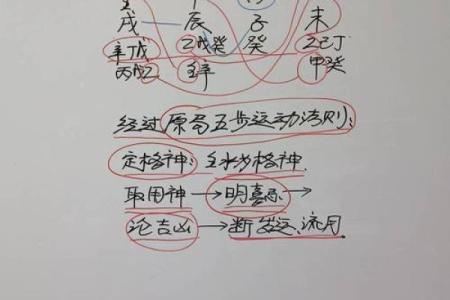 戌 辰 子 未
辛戊 乙戊癸 癸 乙己丁
丙戊乙 壬辛 甲癸
经过原局五步运动法则:
定格神: 壬水为格神.
取用神→明喜忌→
论吉凶→断岁运、流月.